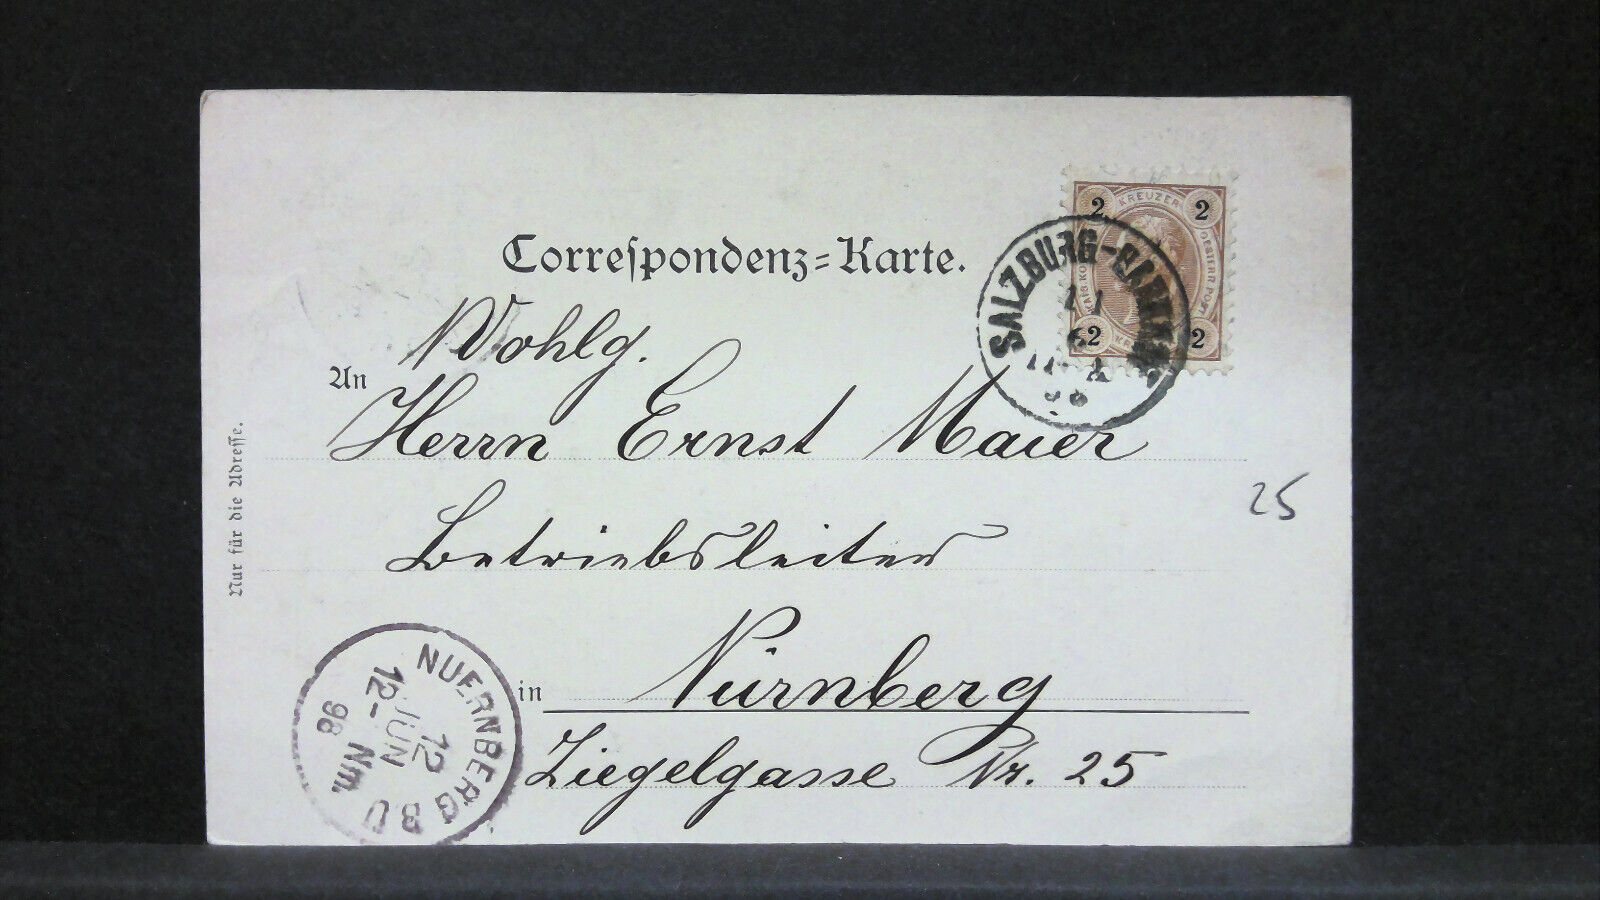 Correſpondenz=Karte.
2 KREUZER 2
OESTERR. POST
2 2
SALZBURG-BAHNHOF
An Wohlg.
Herrn Ernst Maier
Betriebsleiter
in Nürnberg
Ziegelgasse Nr. 25
25
Nur für die Adreſſe.
NUERNBERG
12 JUN 98
12- Nm.